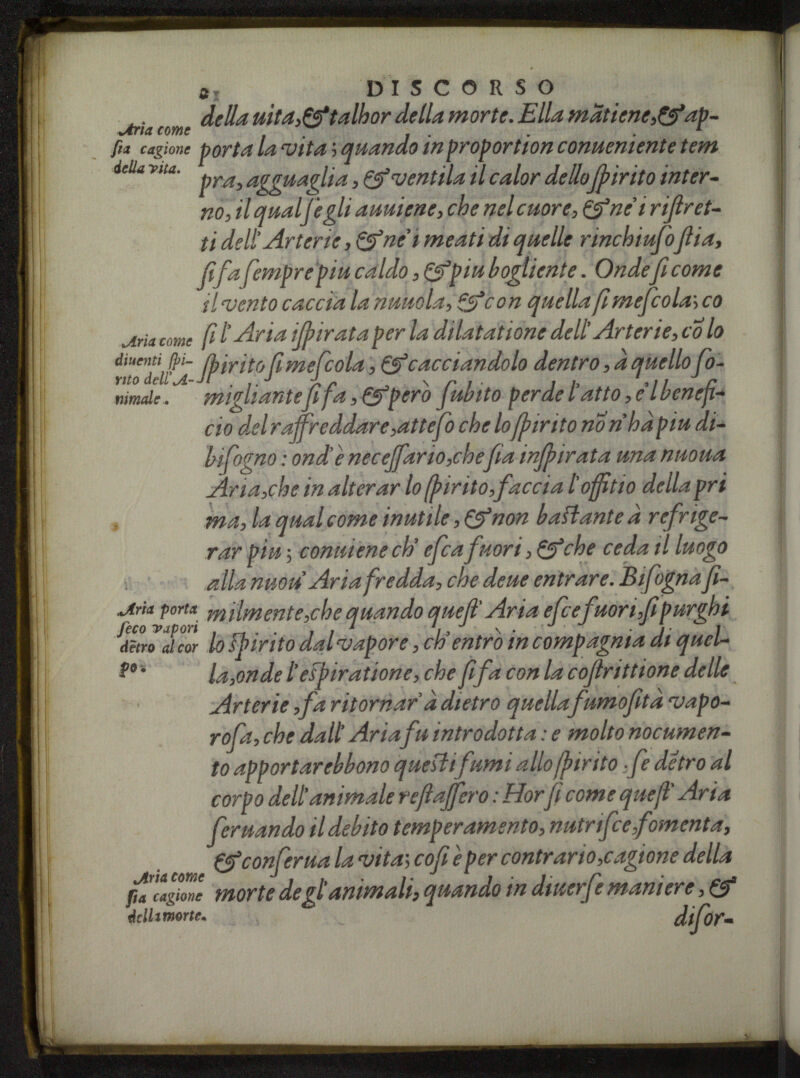 2 DISCORSO
della uita,& talhor della morte. Ella mãtiene,& ap-
Aria come
fia cagione
della vita.
porta la vita; quando in proportion conueniente tem
pra, agguaglia, & ventila il calor dello spirito inter-
no, il qual se gli auuiene, che nel cuore, & ne i ristret-
ti dell' Arterie, & ne i meati di quelle rinchiuso stia,
si fa sempre piu caldo, & piu bogliente. Onde si come
il vento caccia la nuuola, & con quella si mescola; co
Aria come
diuenti spi-
rito dell'A-
nimale.
si l' Aria ispirata per la dilatatione dell' Arterie, cõ lo
spirito si mescola, & cacciandolo dentro, à quello so-
migliante si fa, & però subito perde l'atto, e'l benefi-
cio del raffreddare,atteso che lo spirito nõ n'hà piu di-
bisogno: ond' è necessario,che sia inspirata una nuoua
Aria,che in alterar lo spirito,faccia l'offitio della pri
ma, la qual come inutile, & non bastante à refrige-
rar piu; conuiene ch' esca fuori, & che ceda il luogo
alla nuou' Aria fredda, che deue entrare. Bisogna si-
Aria porta
seco vapori
dẽtro al cor
po.
milmente,che quando quest' Aria esce fuori,si purghi
lo spirito dal vapore, ch' entrò in compagnia di quel-
la,onde l'espiratione, che si fa con la costrittione delle
Arterie,fa ritornar' à dietro quella fumosità vapo-
rosa, che dall' Aria fu introdotta: e molto nocumen-
to apportarebbono questi fumi allo spirito, se dẽtro al
corpo dell'animale restassero: Hor si come quest' Aria
seruando il debito temperamento, nutrisce,fomenta,
& conserua la vita; cosi è per contrario,cagione della
Aria come
fia cagione
della morte.
morte de gl'animali, quando in diuerse maniere, &
disor-